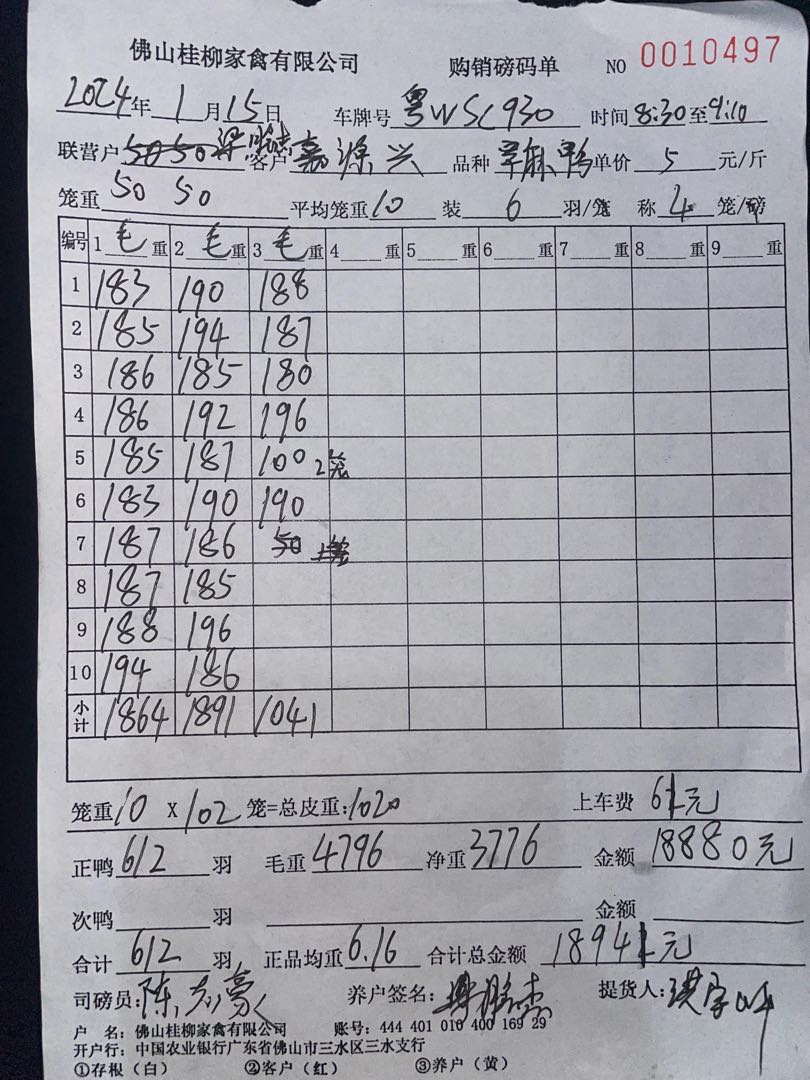 佛山桂柳家禽有限公司 购销磅码单 NO 0010497
2024年 1月15日 车牌号 粤WSC930 时间 8:30 至 9:10
联营户 客户 嘉源兴 品种 草麻鸭 单价 5 元/斤
笼重 50 50 平均笼重 10 装 6 羽/笼 称 4 笼/磅
编号 1 毛 重 2 毛 重 3 毛 重 4 重 5 重 6 重 7 重 8 重 9 重
1 183 190 188
2 185 194 187
3 186 185 180
4 186 192 196
5 185 187 100 2笼
6 183 190 190
7 187 186
8 187 185
9 188 196
10 194 186
小计 1864 1891 1041
笼重 10 X 102 笼=总皮重: 1020 上车费 61元
正鸭 612 羽 毛重 4796 净重 3776 金额 18880元
次鸭 羽 金额
合计 612 羽, 正品均重 6.16 合计总金额 18941元
司磅员: 陈 养户签名: 提货人:
户 名: 佛山桂柳家禽有限公司 账号: 444 401 010 400 169 29
开户行: 中国农业银行广东省佛山市三水区三水支行
①存根(白) ②客户(红) ③养户(黄)